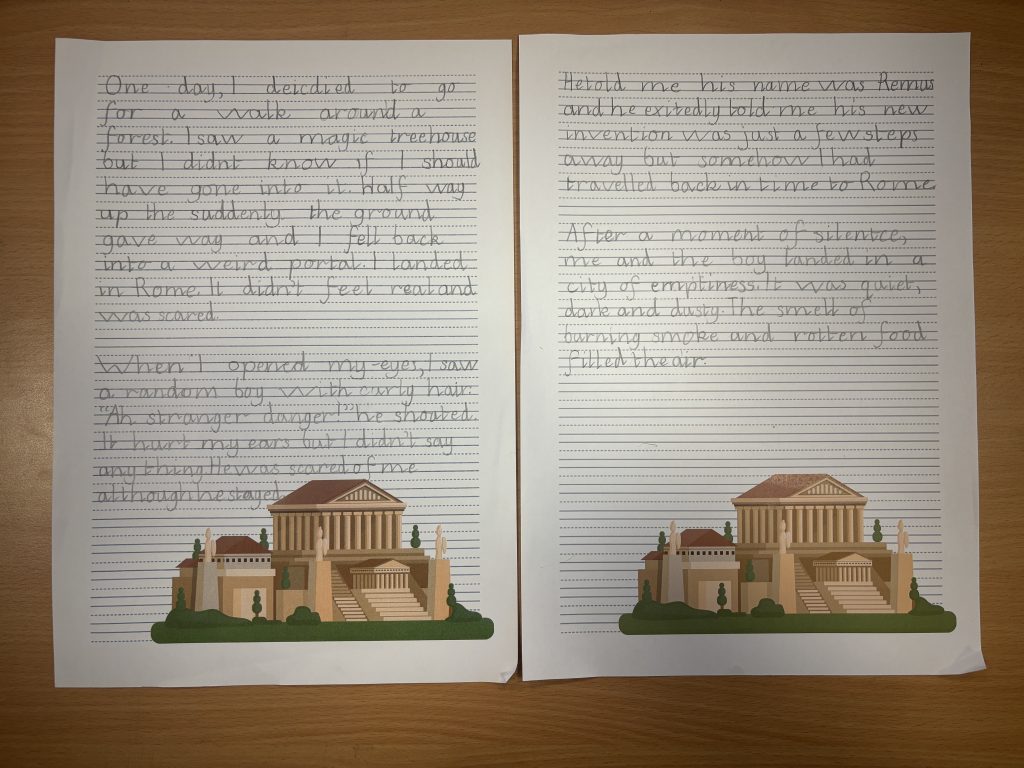 One day, I deicdied to go
for a walk around a
forest. I saw a magic treehouse
but I didnt know if I should
have gone into it. Half way
up the suddenly. the ground
gave way and I fell back
into a weird portal. I landed
in Rome. It didn't feel real and
was scared.
When I opened my eyes, I saw
a random boy with curly hair.
"Ah stranger danger!" he shouted.
It hurt my ears but I didn't say
any thing He was scared of me
although he stayed.
He told me his name was Remus
and he exitedly told me his new
invention was just a few steps
away but somehow I had
travelled back in time to Rome.
After a moment of silence,
me and the boy landed in a
city of emptiness. It was quiet,
dark and dusty. The smell of
burning smoke and rotten food
filled the air.